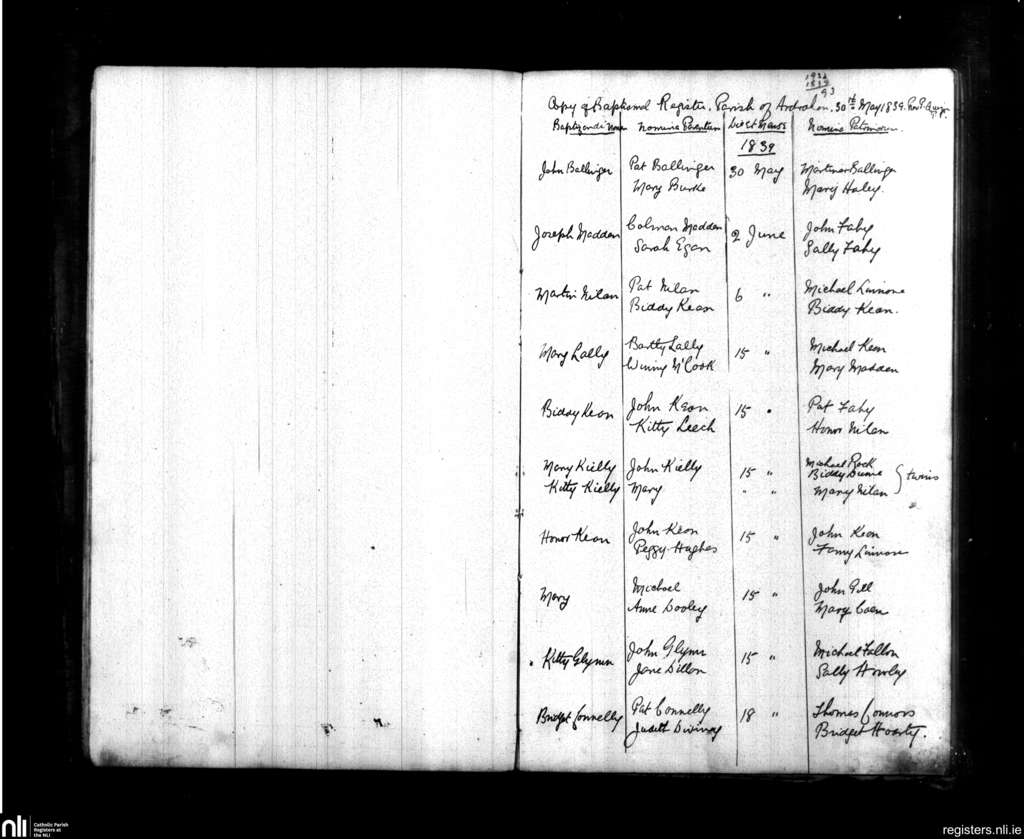 1839
93
Copy of Baptismal Register. Parish of Ardrahan. 30th May 1839.
Baptizandi Nomen Nomina Parentum Dies et Mensis Nomina Patrinorum.
1839
John Ballinger Pat Ballinger 30 May Martin Ballinger
Mary Burke Mary Haley.
Joseph Madden Colman Madden 2 June John Fahy
Sarah Egan Sally Fahy
Martin Nilan Pat Nilan 6 " Michael Linnane
Biddy Kean Biddy Kean.
Mary Lally Bartly Lally 15 " Michael Keon
Winny McCook Mary Madden
Biddy Keon John Keon 15 " Pat Fahy
Kitty Leech Honor Nilan
Mary Kielly John Kielly 15 " Michael Rock
Biddy Dunne
Kitty Kielly Mary " " Mary Nilan } twins
Honor Kean John Keon 15 " John Keon
Peggy Hughes Fanny Linnane
Mary Michael 15 " John Gill
Anne Dooley Mary Coen
Kitty Glynn John Glynn 15 " Michael Fallon
Jane Dillon Sally Howley
Bridget Connelly Pat Connelly 18 " Thomas Connors
Judith Diviney Bridget Hoarty.
nli
Catholic Parish
Registers at
the NLI
registers.nli.ie